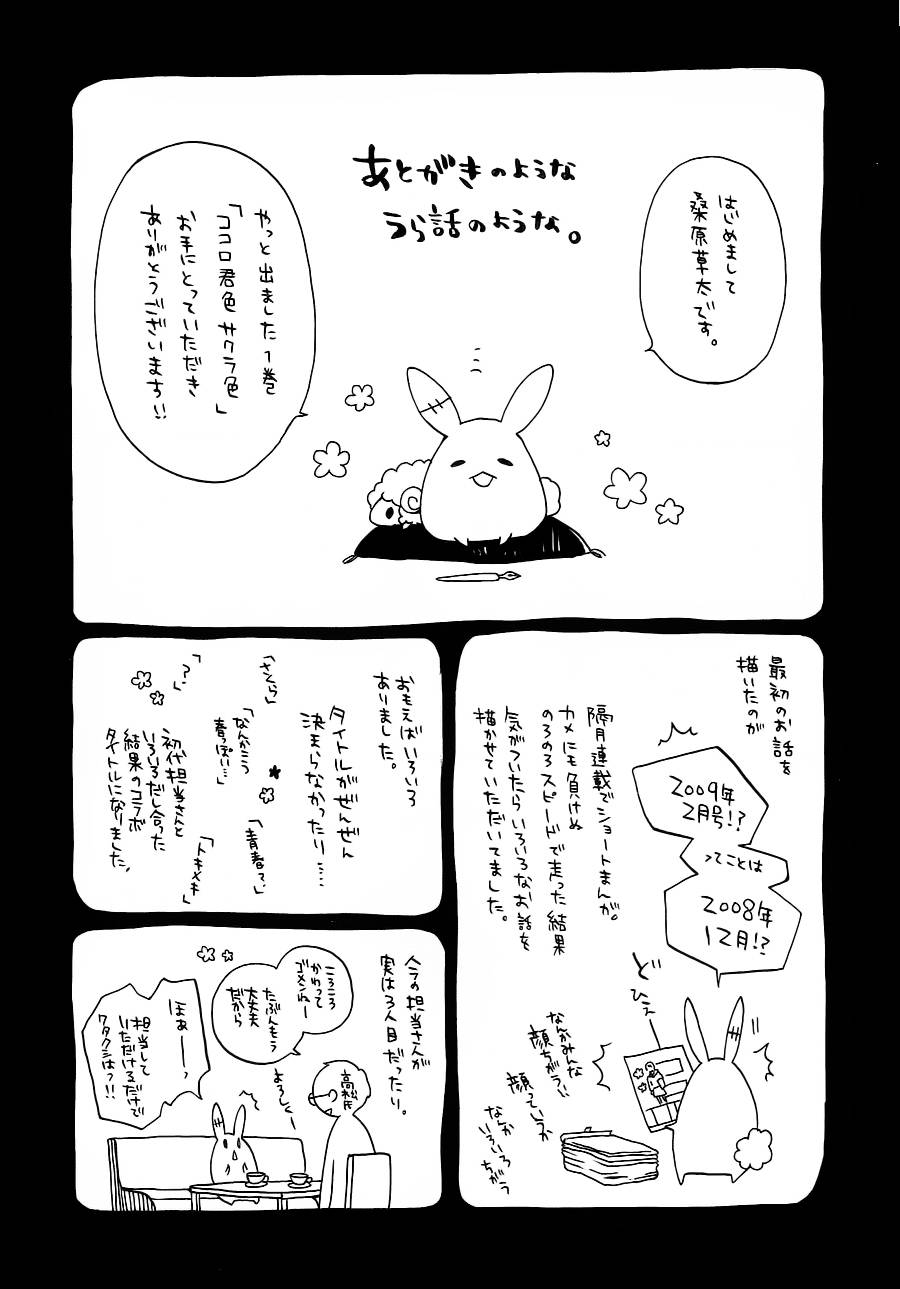 あとがきのような
うら話のような。
はじめまして
桑原草太です。
やっと出ました1巻
「ココロ君色サクラ色」
お手にとっていただき
ありがとうございます!!
最初のお話を
描いたのが
2009年
2月号!?
ってことは
2008年
12月!?
隔月連載でショートまんが。
カメにも負けぬ
のろのろスピードで走った結果
気がついたらいろいろなお話を
描かせていただいてました。
どひえー
なんかみんな
顔ちがう!!
顔っていうか
なんか
いろいろ
ちがう
おもえばいろいろ
ありました。
タイトルがぜんぜん
決まらなかったり……
「さくら」
「なんかこう
春っぽい…」
「?」
「青春て」
「トキメキ」
初代担当さんと
いろいろだし合った
結果のコラボ
タイトルになりました。
今の担当さんが
実は3人目だったり。
ころころ
かわって
ゴメンねー
たぶんもう
大丈夫
だから
よろしくー
高松氏
ほぁーーっ
担当して
いただけるだけで
ワタクシはっ!!